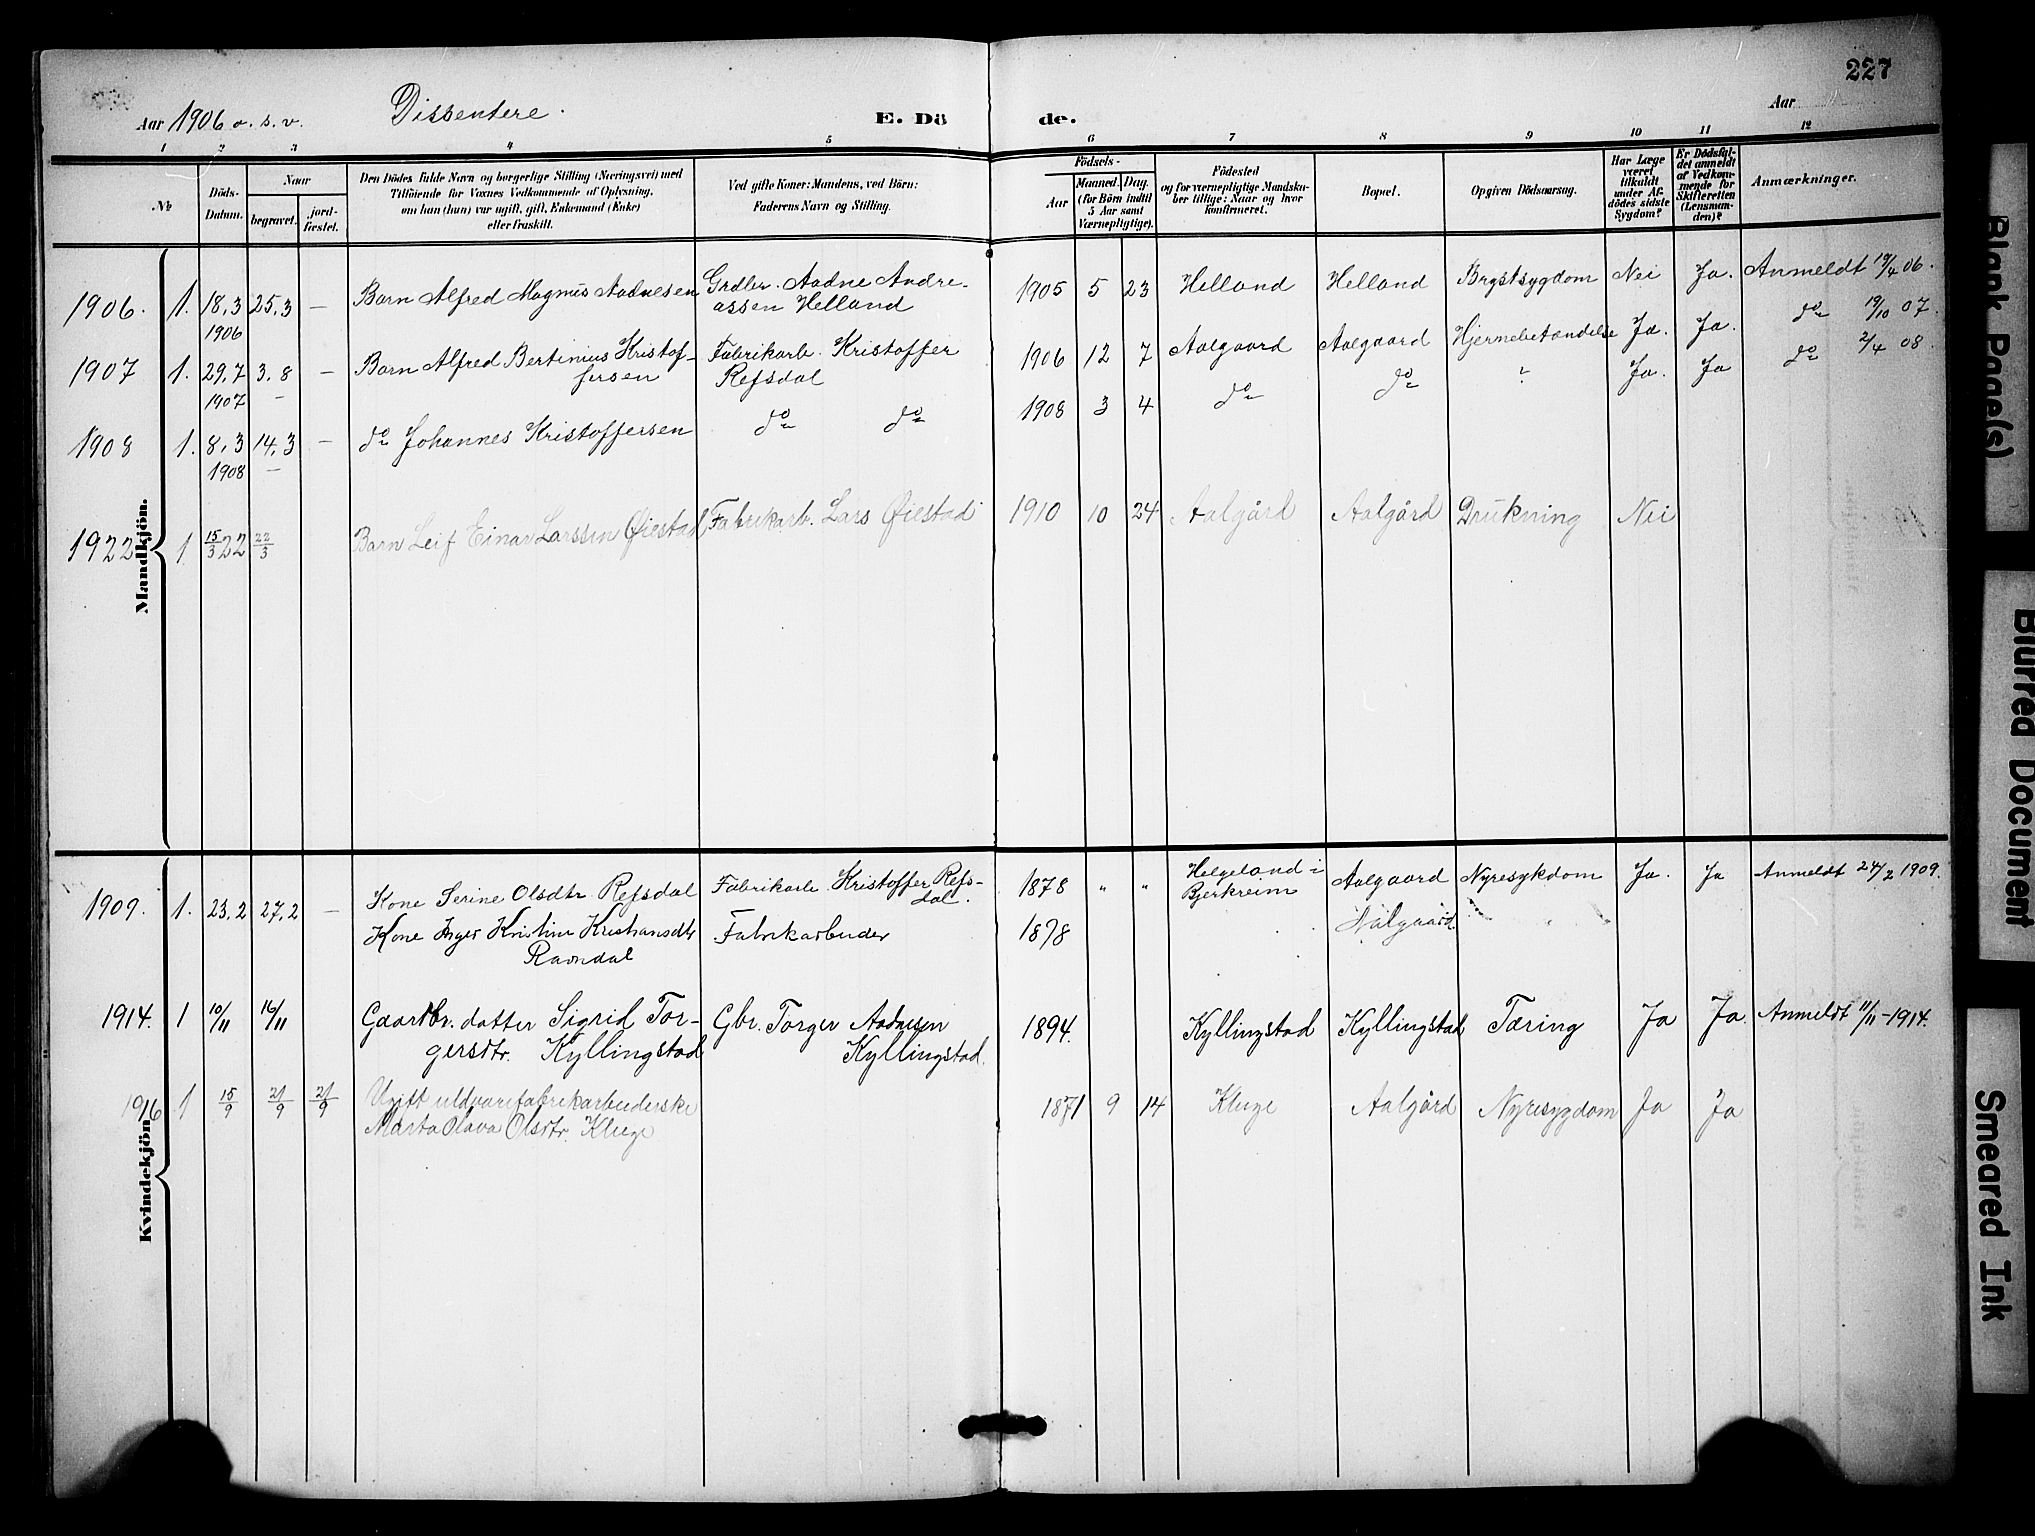 227
Aar 1906 o. s. v.
Dissentere.
E. Döde.
Aar
1 2 3 4 5 6 7 8 9 10 11 12
№
Döds-Datum.
Naar
begravet.
jord-fæstet.
Den Dödes fulde Navn og borgerlige Stilling (Næringsvei) med
Tilföiende for Voxnes Vedkommende af Oplysning,
om han (hun) var ugift, gift, Enkemand (Enke)
eller fraskilt.
Ved gifte Koner: Mandens, ved Börn:
Faderens Navn og Stilling.
Födsels-
Aar
Maaned. Dag.
(for Börn indtil
5 Aar samt
Værnepligtige).
Födested
og for værnepligtige Mandsku-
ber tillige: Naar og hvor
konfirmeret.
Bopel.
Opgiven Dödsaarsag.
Har Læge
været
tilkaldt
under Af-
dödes sidste
Sygdom?
Er Dödsfal-
det anmeldt
af Vedkom-
mende for
Skifteretten
(Lensman-
den)?
Anmærkninger.
Mandkjön.
1906. 1. 18,3 25,3 — Barn Alfred Magnus Aadnesen Grdbr. Aadne Andre- 1905 5 23 Helland Helland Brystsygdom Nei Ja. Anmeldt 19/4 06.
1906 assen Helland
1907 1. 29,7 3,8 — Barn Alfred Bertinius Kristof- Fabrikarb. Kristoffer 1906 12 7 Aalgaard Aalgaard Hjernebetændelse Ja. Ja. do 19/10 07.
1907 — fersen Refsdal
1908 1. 8,3 14,3 — do Johannes Kristoffersen do do 1908 3 4 do do ? Ja. Ja do 2/4 08.
1908 —
1922 1 15/3 22 22/3 Barn Leif Einar Larssen Øiestad Fabrikarb. Lars Øiestad 1910 10 24 Aalgård Aalgård Drukning Nei
Kvindekjön.
1909. 1. 23,2 27,2 — Kone Serine Olsdtr Refsdal Fabrikarb. Kristoffer Refs- 1878 " " Helgeland i Aalgaard Nyresykdom Ja. Ja Anmeldt 24/2 1909.
dal. Bjerkreim
Kone Inger Kristine Kristiansdtr Fabrikarbeider 1878 Aalgaard
Ravndal
1914. 1 10/11 16/11 Gaardbr. datter Sigrid Tor- Gbr. Torger Aadnesen 1894. Kyllingstad Kyllingstad Tæring Ja Ja. Anmeldt 11/11-1914.
gersdtr. Kyllingstad Kyllingstad.
1916 1 15/9 21/9 21/9 Ugift uldvarefabrikarbeiderske 1871 9 14 Kluge Aalgård Nyresygdom Ja Ja
Marta Olava Olsdtr. Kluge
Blank Page(s)
Blurred Document
Smeared Ink